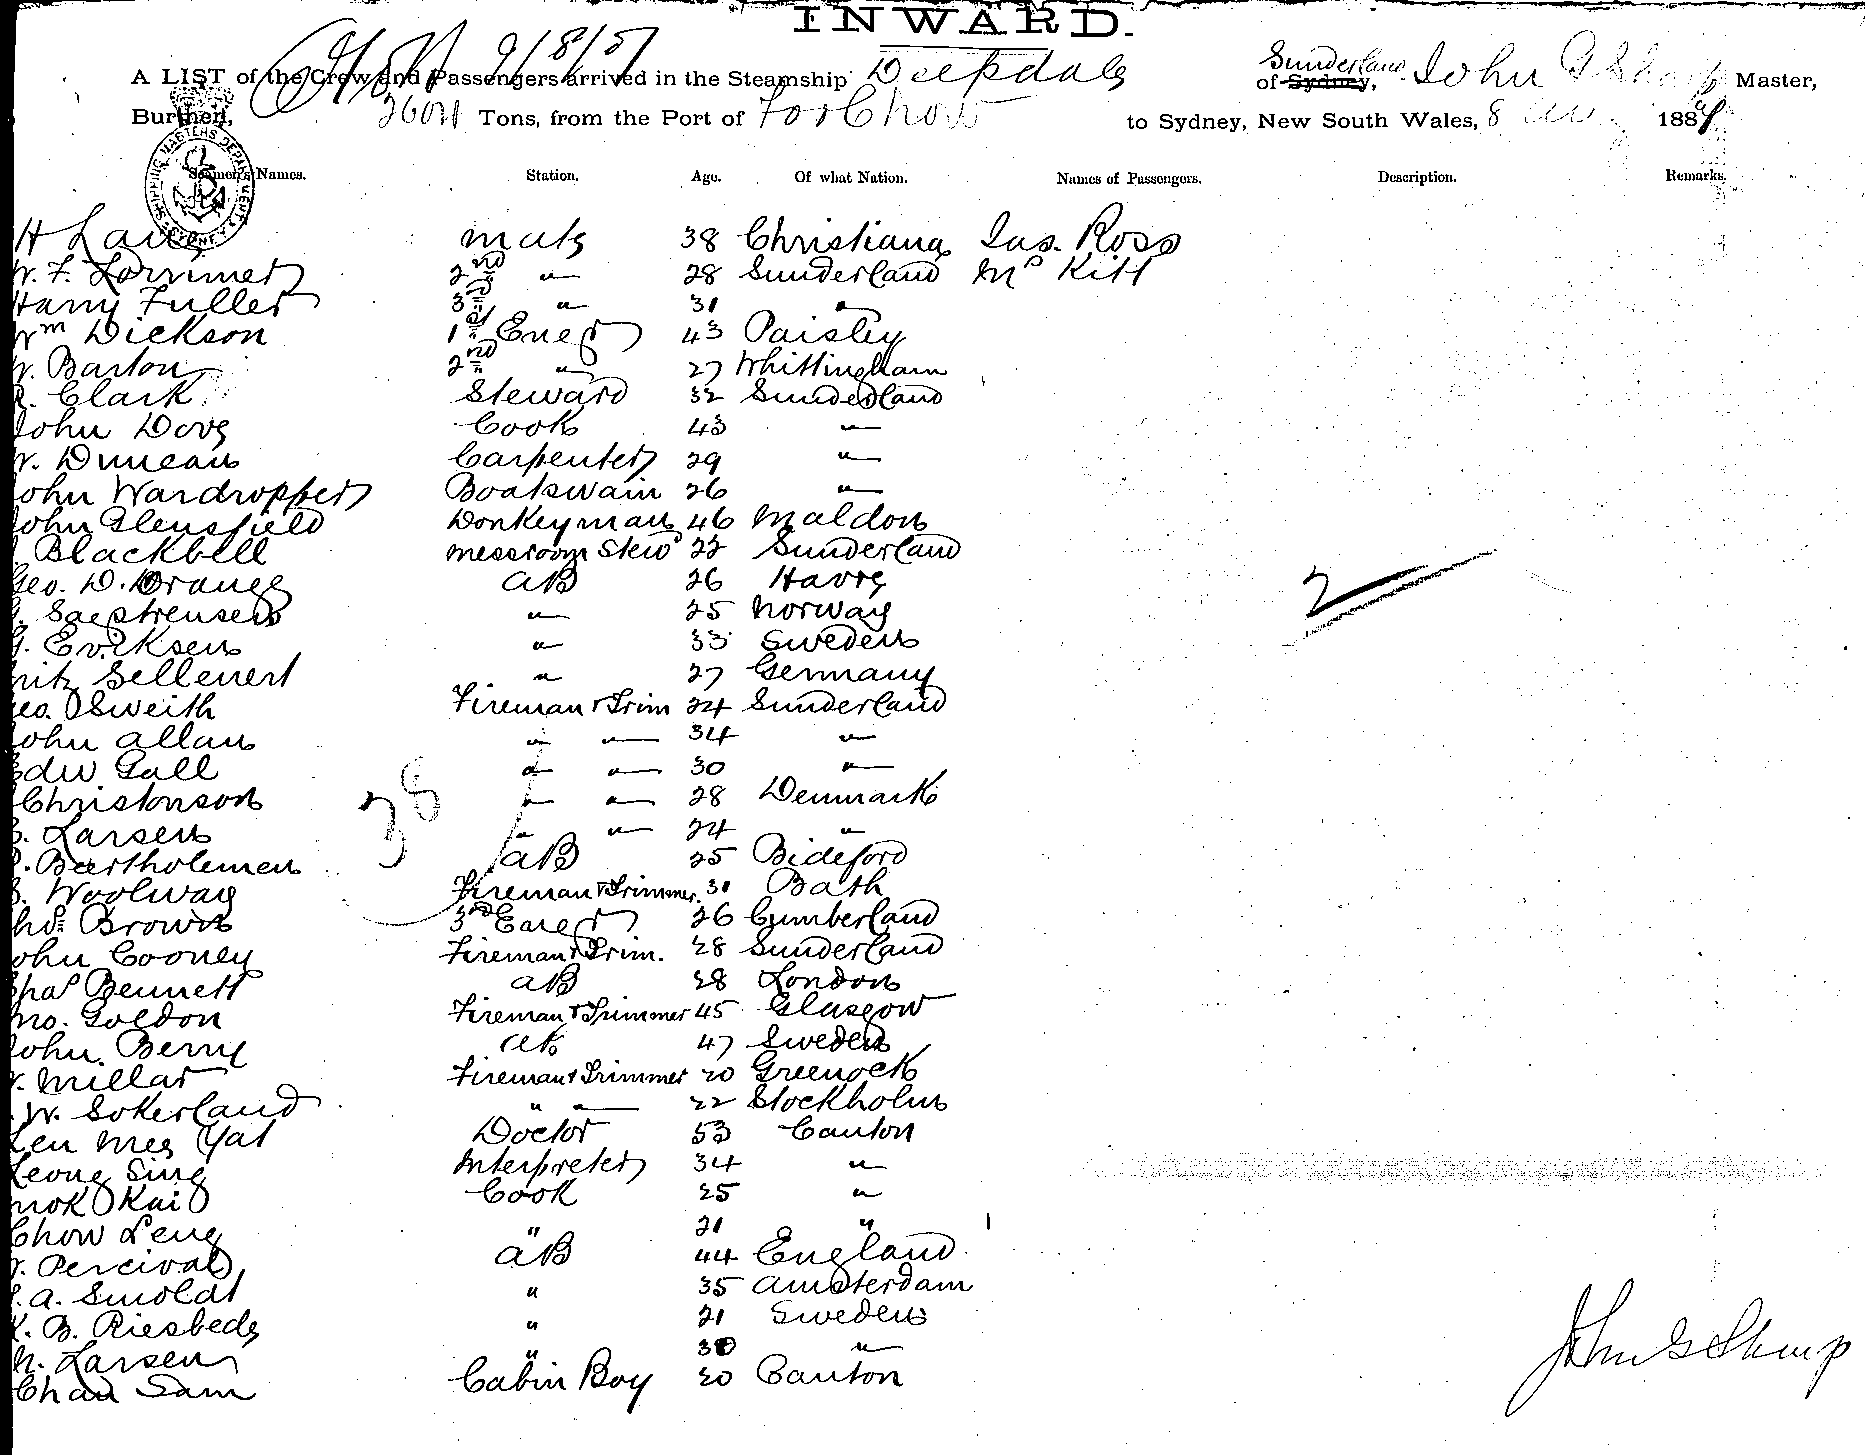 INWARD.
9/8/87
A LIST of the Crew and Passengers arrived in the Steamship Deepdale of Sydney, Sunderland John G Sharp Master,
Burthen, Tons, from the Port of Foo Chow to Sydney, New South Wales, 8 188
SHIPPING MASTERS DEPARTMENT SYDNEY
Seamen's Names. Station. Age. Of what Nation. Names of Passengers. Description. Remarks.
H Lane mate 38 Christiana Jas. Ross
W. F. Lorrimer 2nd " 28 Sunderland Mr Kitt
Harry Fuller 3rd " 31 "
Wm Dickson 1st Engr 43 Paisley
W. Barton 2nd " 27 Whittingham
R. Clark Steward 32 Sunderland
John Dove Cook 43 "
W. Duncan Carpenter 29 "
John Wardropper Boatswain 26 "
John Glensfield Donkeyman 46 Maldon
Blackbell messroom Stewd 22 Sunderland
Geo. D. Orange AB 26 Havre
Saepstrensen " 25 Norway
G. Eriksen " 33 Sweden
Fritz Sellenert " 27 Germany
Geo. Sweith Fireman & Trim 24 Sunderland
John Allan " " 34 "
Edw Gall " " 30 "
Christonson " " 28 Denmark
38
Larsen " " 24 "
Bartholemew AB 25 Bideford
Woolway Fireman & Trimmer. 31 Bath
Thos Brown 3rd Engr 26 Cumberland
John Cooney Fireman & Trim. 28 Sunderland
Chas Bennett AB 28 London
Jno. Goldon Fireman & Trimmer 45 Glasgow
John Berry AB 47 Sweden
Millar Fireman & Trimmer 20 Greenock
W. Sokerland " " 22 Stockholm
Len Mee Yat Doctor 53 Canton
Leong Sing Interpreter 34 "
Mok Kai Cook 25 "
Chow Leng " 21 "
Percival AB 44 England
A. Smoldt " 35 Amsterdam
K. B. Riesbede " 21 Sweden
N. Larsen " 30 "
Chan Sam Cabin Boy 20 Canton
2
John G Sharp